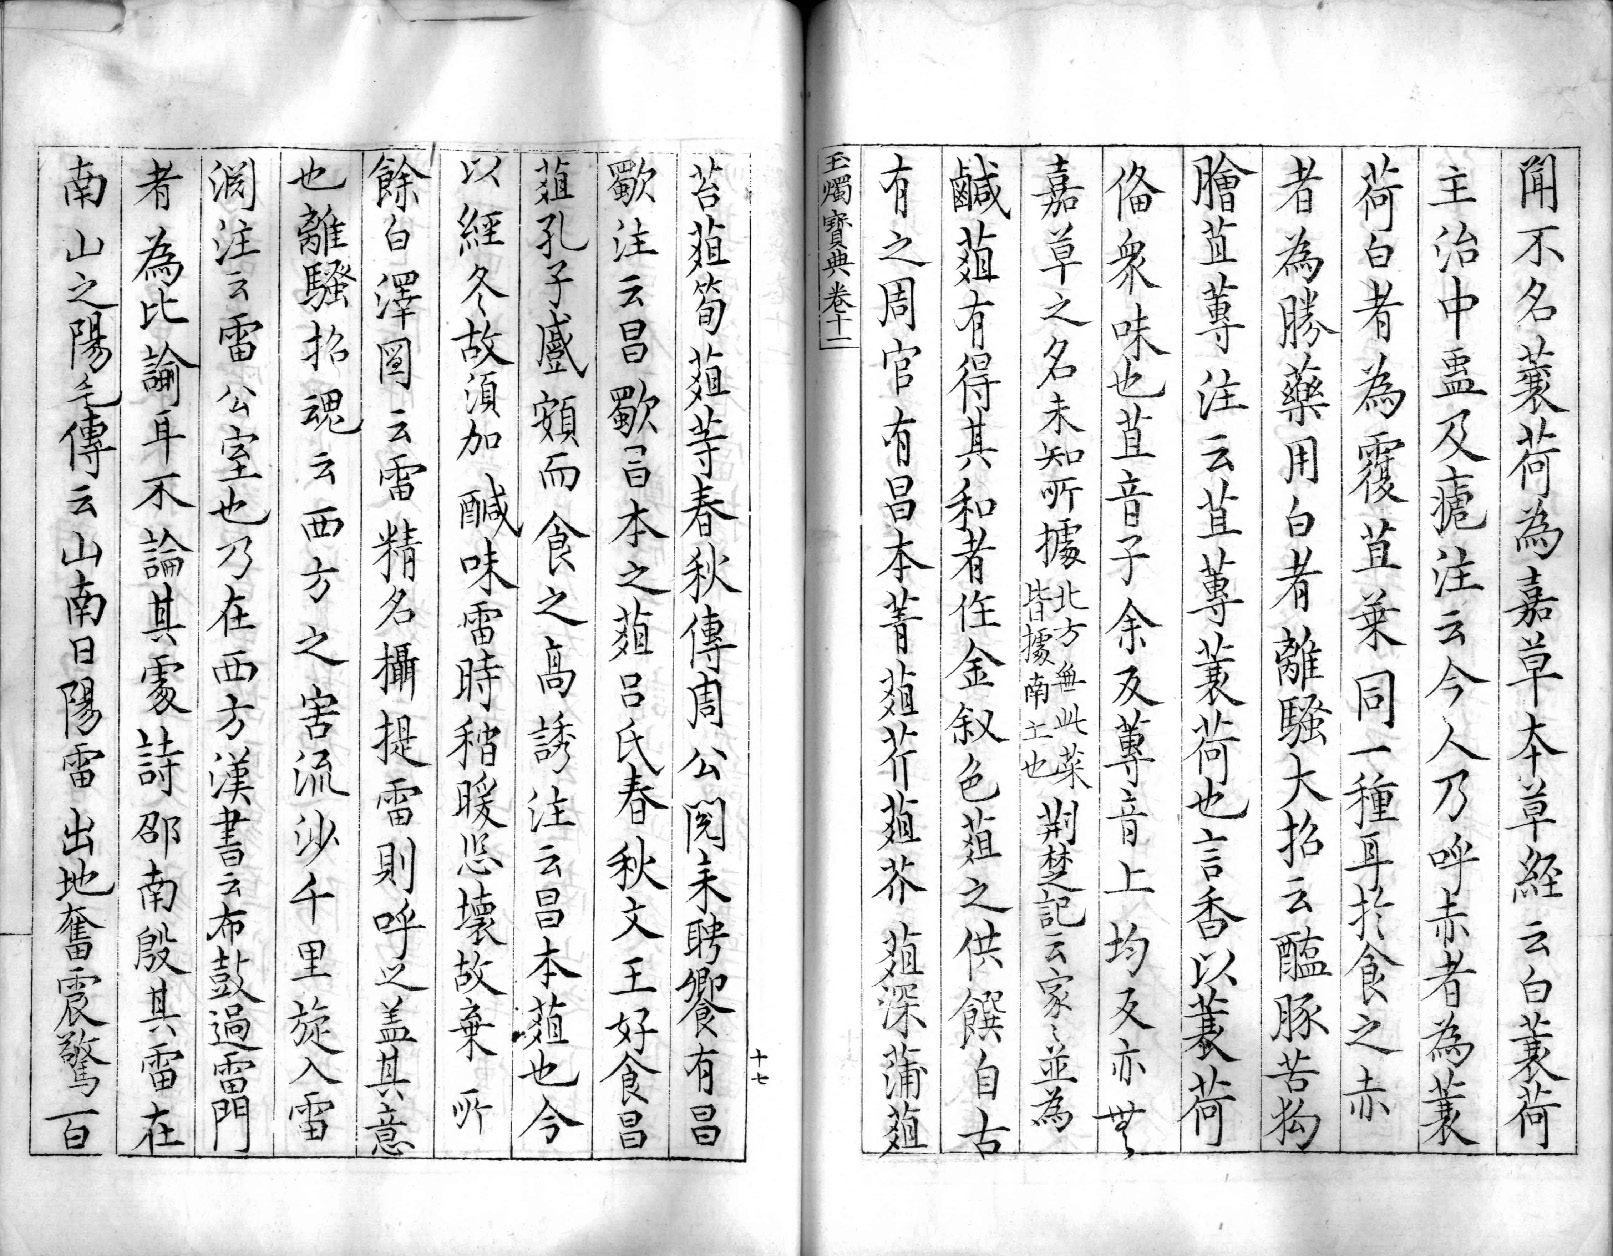 聞不名蘘荷為嘉草本草經云白蘘荷
主治中蠱及瘧注云今人乃呼赤者為蘘
荷白者為覆苴葉同一種耳於食之赤
者為勝藥用白者離騷大招云醢豚苦狗
膾苴蓴注云苴蓴蘘荷也言香以蘘荷
俻衆味也苴音子余反蓴音上均反亦無
嘉草之名未知所據北方無此菜皆據南土也荆楚記云家〻並為
鹹葅有得其和者作金釵色葅之供饌自古
有之周官有昌本菁葅芹葅芥葅深蒲葅
玉燭寶典卷十二
十七
苔葅筍葅等春秋傳周公閱来聘饗有昌
歜注云昌歜昌本之葅呂氏春秋文王好食昌
葅孔子蹙頞而食之高誘注云昌本葅也今
以經冬故湏加醎味雷時稍暖恐壞故棄所
餘白澤圖云雷精名攝提雷則呼之盖其意
也離騷招魂云西方之害流沙千里旋入雷
淵注云雷公室也乃在西方漢書云布鼓過雷門
者為比諭耳不論其處詩邵南殷其雷在
南山之陽毛傳云山南曰陽雷出地奮震驚百